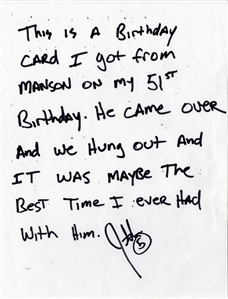 This is a Birthday
Card I got from
Manson on my 51st
Birthday. He came over
And we Hung out And
It was maybe The
Best Time I ever Had
With Him.